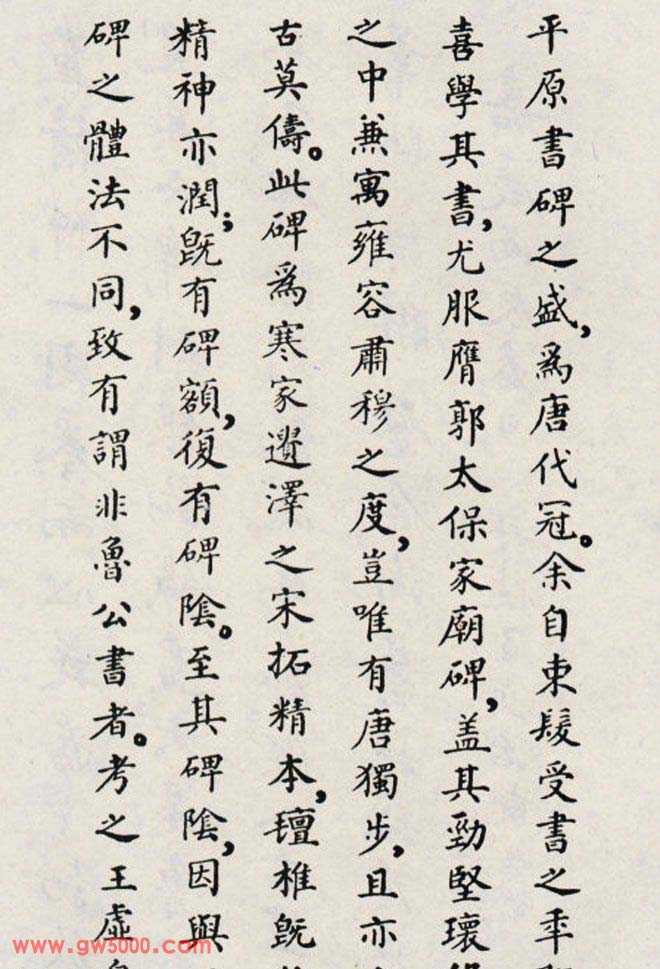 平原書碑之盛，爲唐代冠。余自束髮受書之年
喜學其書，尤服膺郭太保家廟碑，盖其勁堅環
之中兼寓雍容肅穆之度，豈唯有唐獨步，且亦
古莫儔。此碑爲寒家遺澤之宋拓精本，氊椎既
精神亦潤；既有碑額，復有碑陰。至其碑陰，因與
碑之體法不同，致有謂非魯公書者。考之王虛
www.gw5000.com